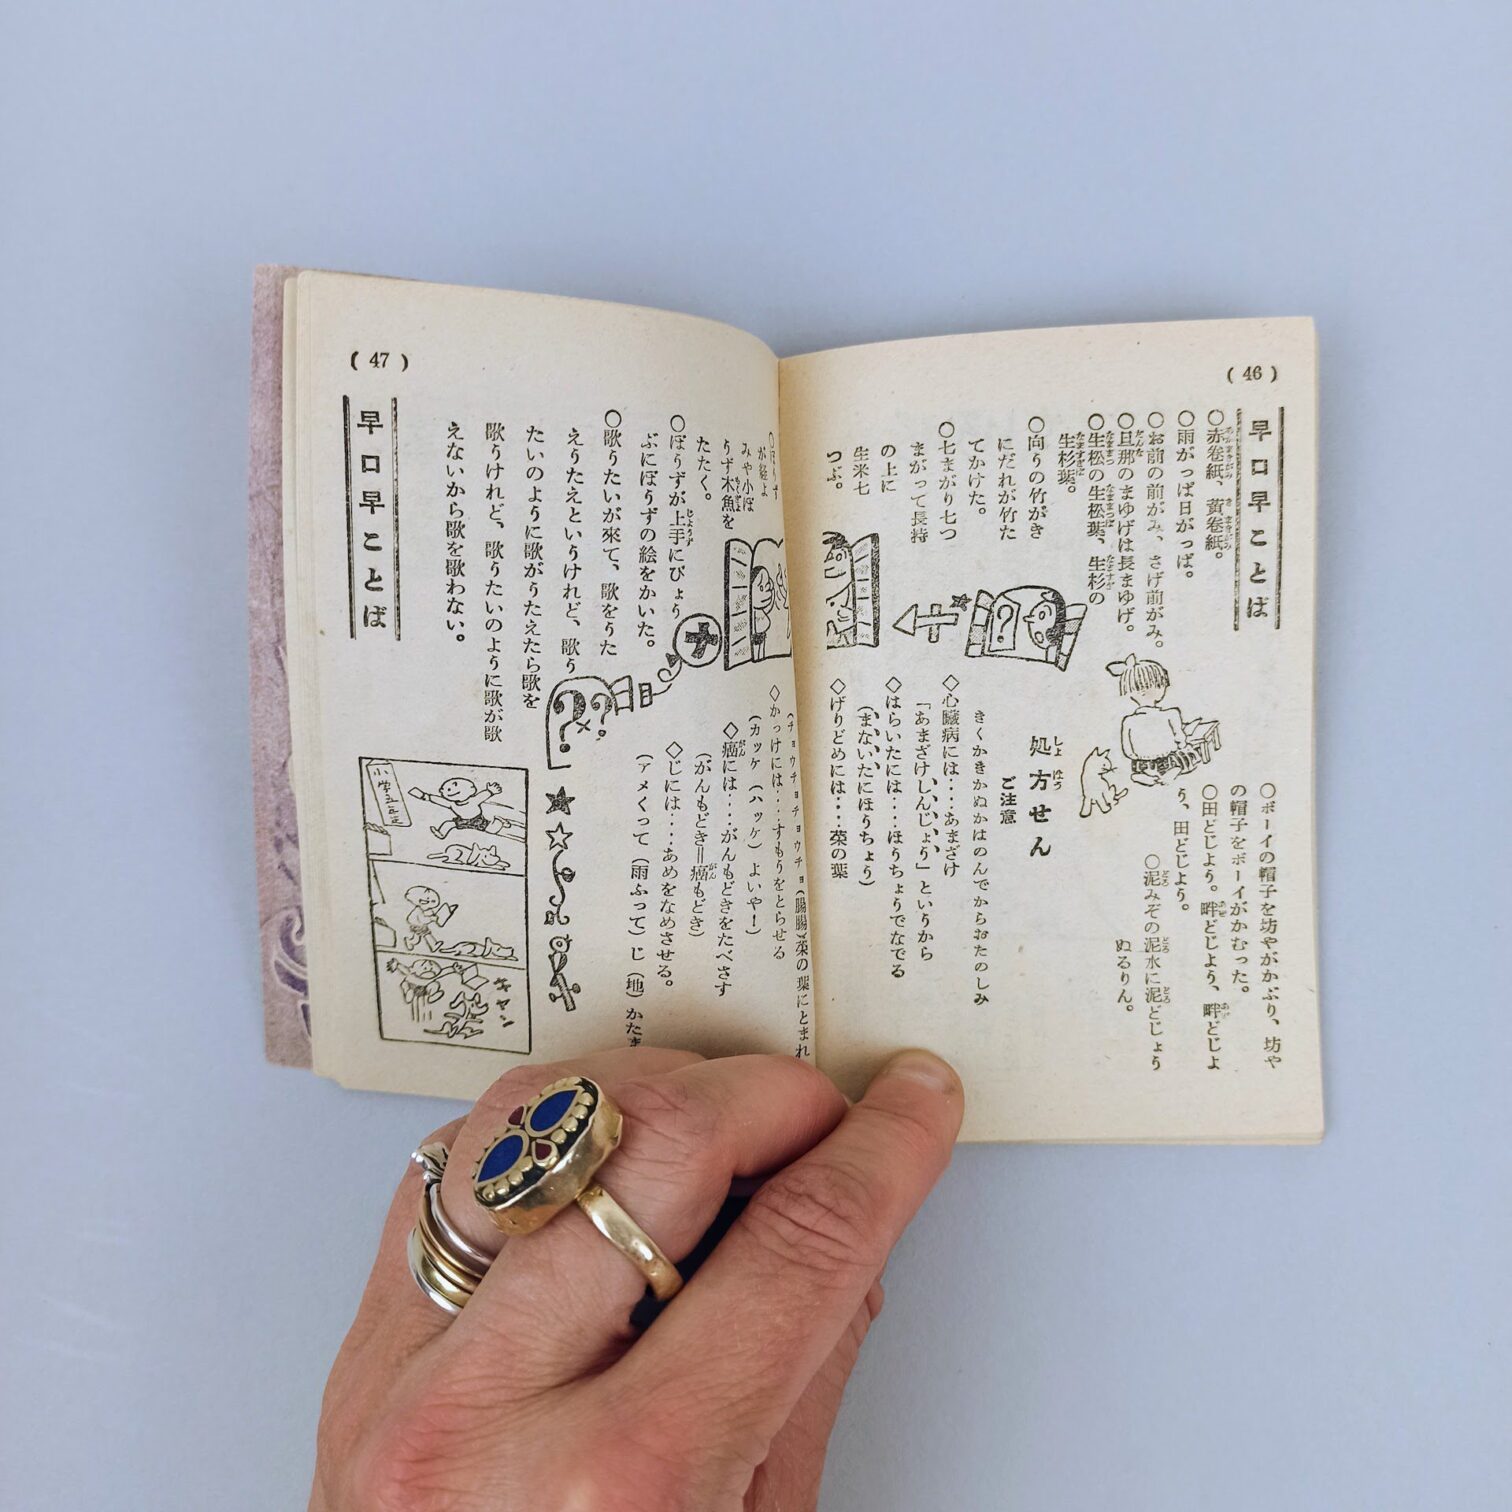 ( 46 )
早口早ことば
○赤巻紙、黄巻紙。
○雨がっぱ日がっぱ。
○お前の前がみ、さげ前がみ。
○旦那のまゆげは長まゆげ。
○生松の生松葉、生杉の
生杉葉。
○向うの竹がき
にだれが竹た
てかけた。
○七まがり七つ
まがって長持
の上に
生米七
つぶ。
○ボーイの帽子を坊やがかぶり、坊や
の帽子をボーイがかむった。
○田どじよう。畔どじよう、畔どじよ
う、田どじよう。
○泥みぞの泥水に泥どじょう
ぬるりん。
処方せん
ご注意
きくかきかぬかはのんでからおたのしみ
◇心臓病には‥‥あまざけ
「あまざけしんじょう」というから
◇はらいたには‥‥ほうちょうでなでる
(まないたにほうちょう)
◇げりどめには‥‥菜の葉
( 47 )
早口早ことば
○ぼうず
が経よ
みや小ぼ
うず木魚を
たたく。
○ぼうずが上手にびょう
ぶにぼうずの絵をかいた。
○歌うたいが來て、歌をうた
えうたえというけれど、歌う
たいのように歌がうたえたら歌を
歌うけれど、歌うたいのように歌が歌
えないから歌を歌わない。
(チョウチョチョウチョ(腸腸)菜の葉にとまれ
◇かっけには‥‥すもうをとらせる
(カッケ(ハッケ)よいや!)
◇癌には‥‥がんもどきをたべさす
(がんもどき=癌もどき)
◇じには‥‥あめをなめさせる。
(アメくって(雨ふって)じ(地)かたま
キャン